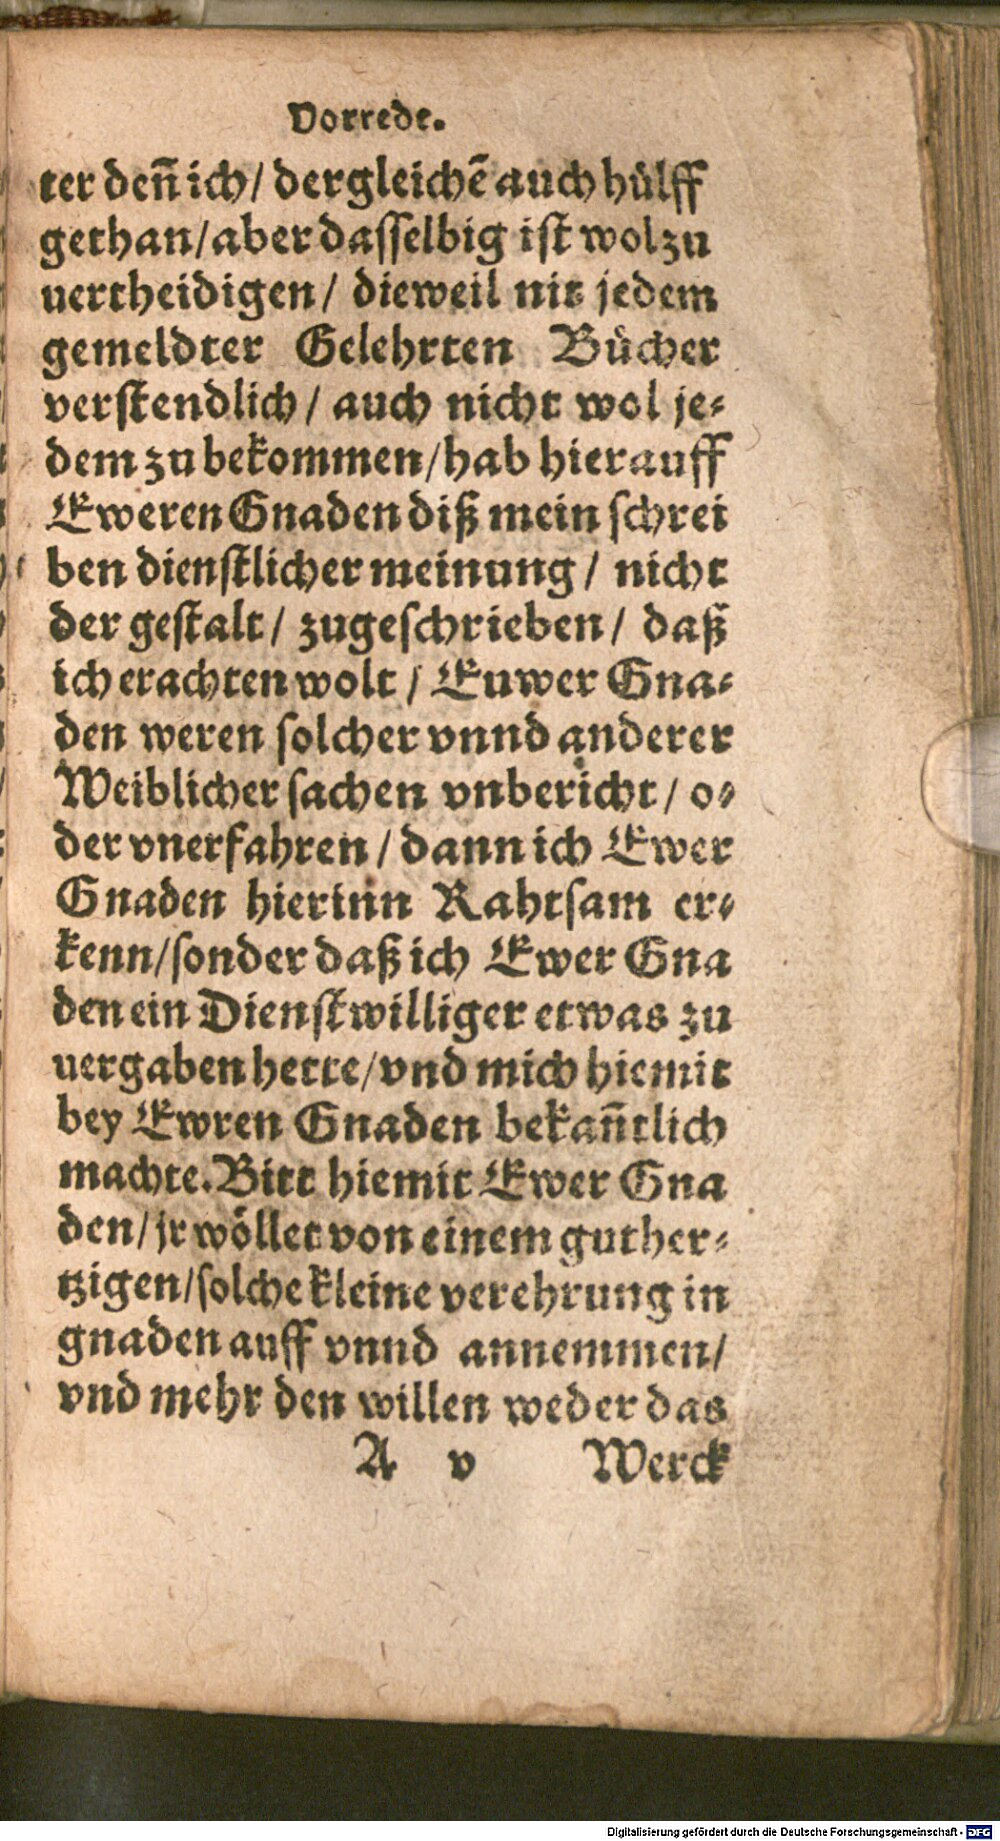 Vorrede.
ter deñ ich / dergleichẽ auch hülff
gethan / aber dasselbig ist wol zu
uertheidigen / dieweil nit jedem
gemeldter Gelehrten Bücher
verstendlich / auch nicht wol je-
dem zu bekommen / hab hierauff
Eweren Gnaden diß mein schrei
ben dienstlicher meinung / nicht
der gestalt / zugeschrieben / daß
ich erachten wolt / Euwer Gna-
den weren solcher vnnd anderer
Weiblicher sachen vnbericht / o-
der vnerfahren / dann ich Ewer
Gnaden hierinn Rahtsam er-
kenn / sonder daß ich Ewer Gna
den ein Dienstwilliger etwas zu
uergaben hette / vnd mich hiemit
bey Ewren Gnaden bekañtlich
machte. Bitt hiemit Ewer Gna
den / jr wöllet von einem guther-
tzigen / solche kleine verehrung in
gnaden auff vnnd annemmen /
vnd mehr den willen weder das
A v Werck
Digitalisierung gefördert durch die Deutsche Forschungsgemeinschaft - DFG